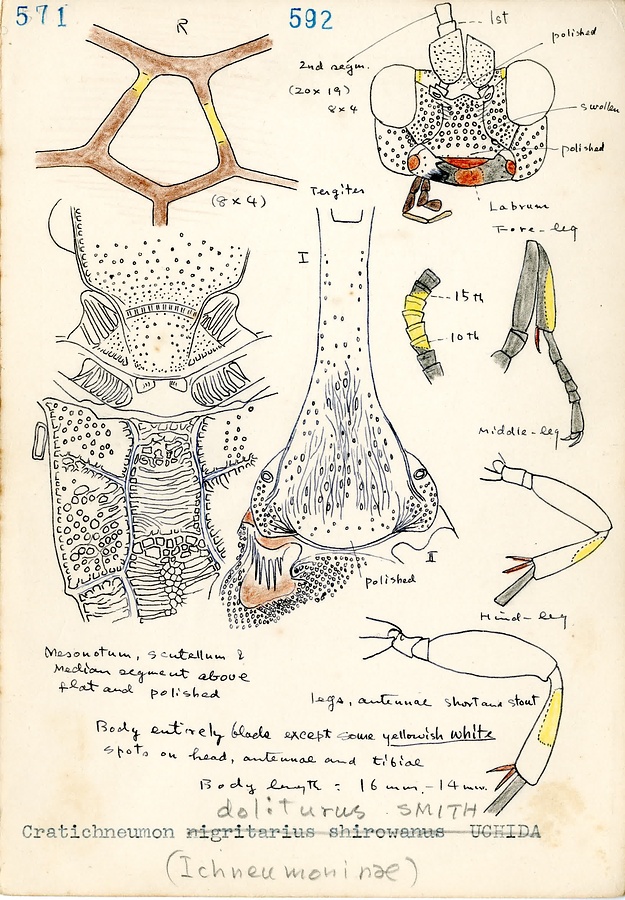 571
592
R
1st
polished
2nd segm.
(20 x 19)
8 x 4
swollen
polished
Labrum
(8 x 4)
Tergites
Fore-leg
I
15th
10th
Middle-leg
II
polished
Hind-leg
Mesonotum, scutellum &
Median segment above
flat and polished
legs, antennae short and stout
Body entirely black except some yellowish white
spots on head, antennae and tibiae
Body length : 16 mm. - 14 mm.
doliturus SMITH
Cratichneumon nigritarius shirowanus UCHIDA
(Ichneumoninae)